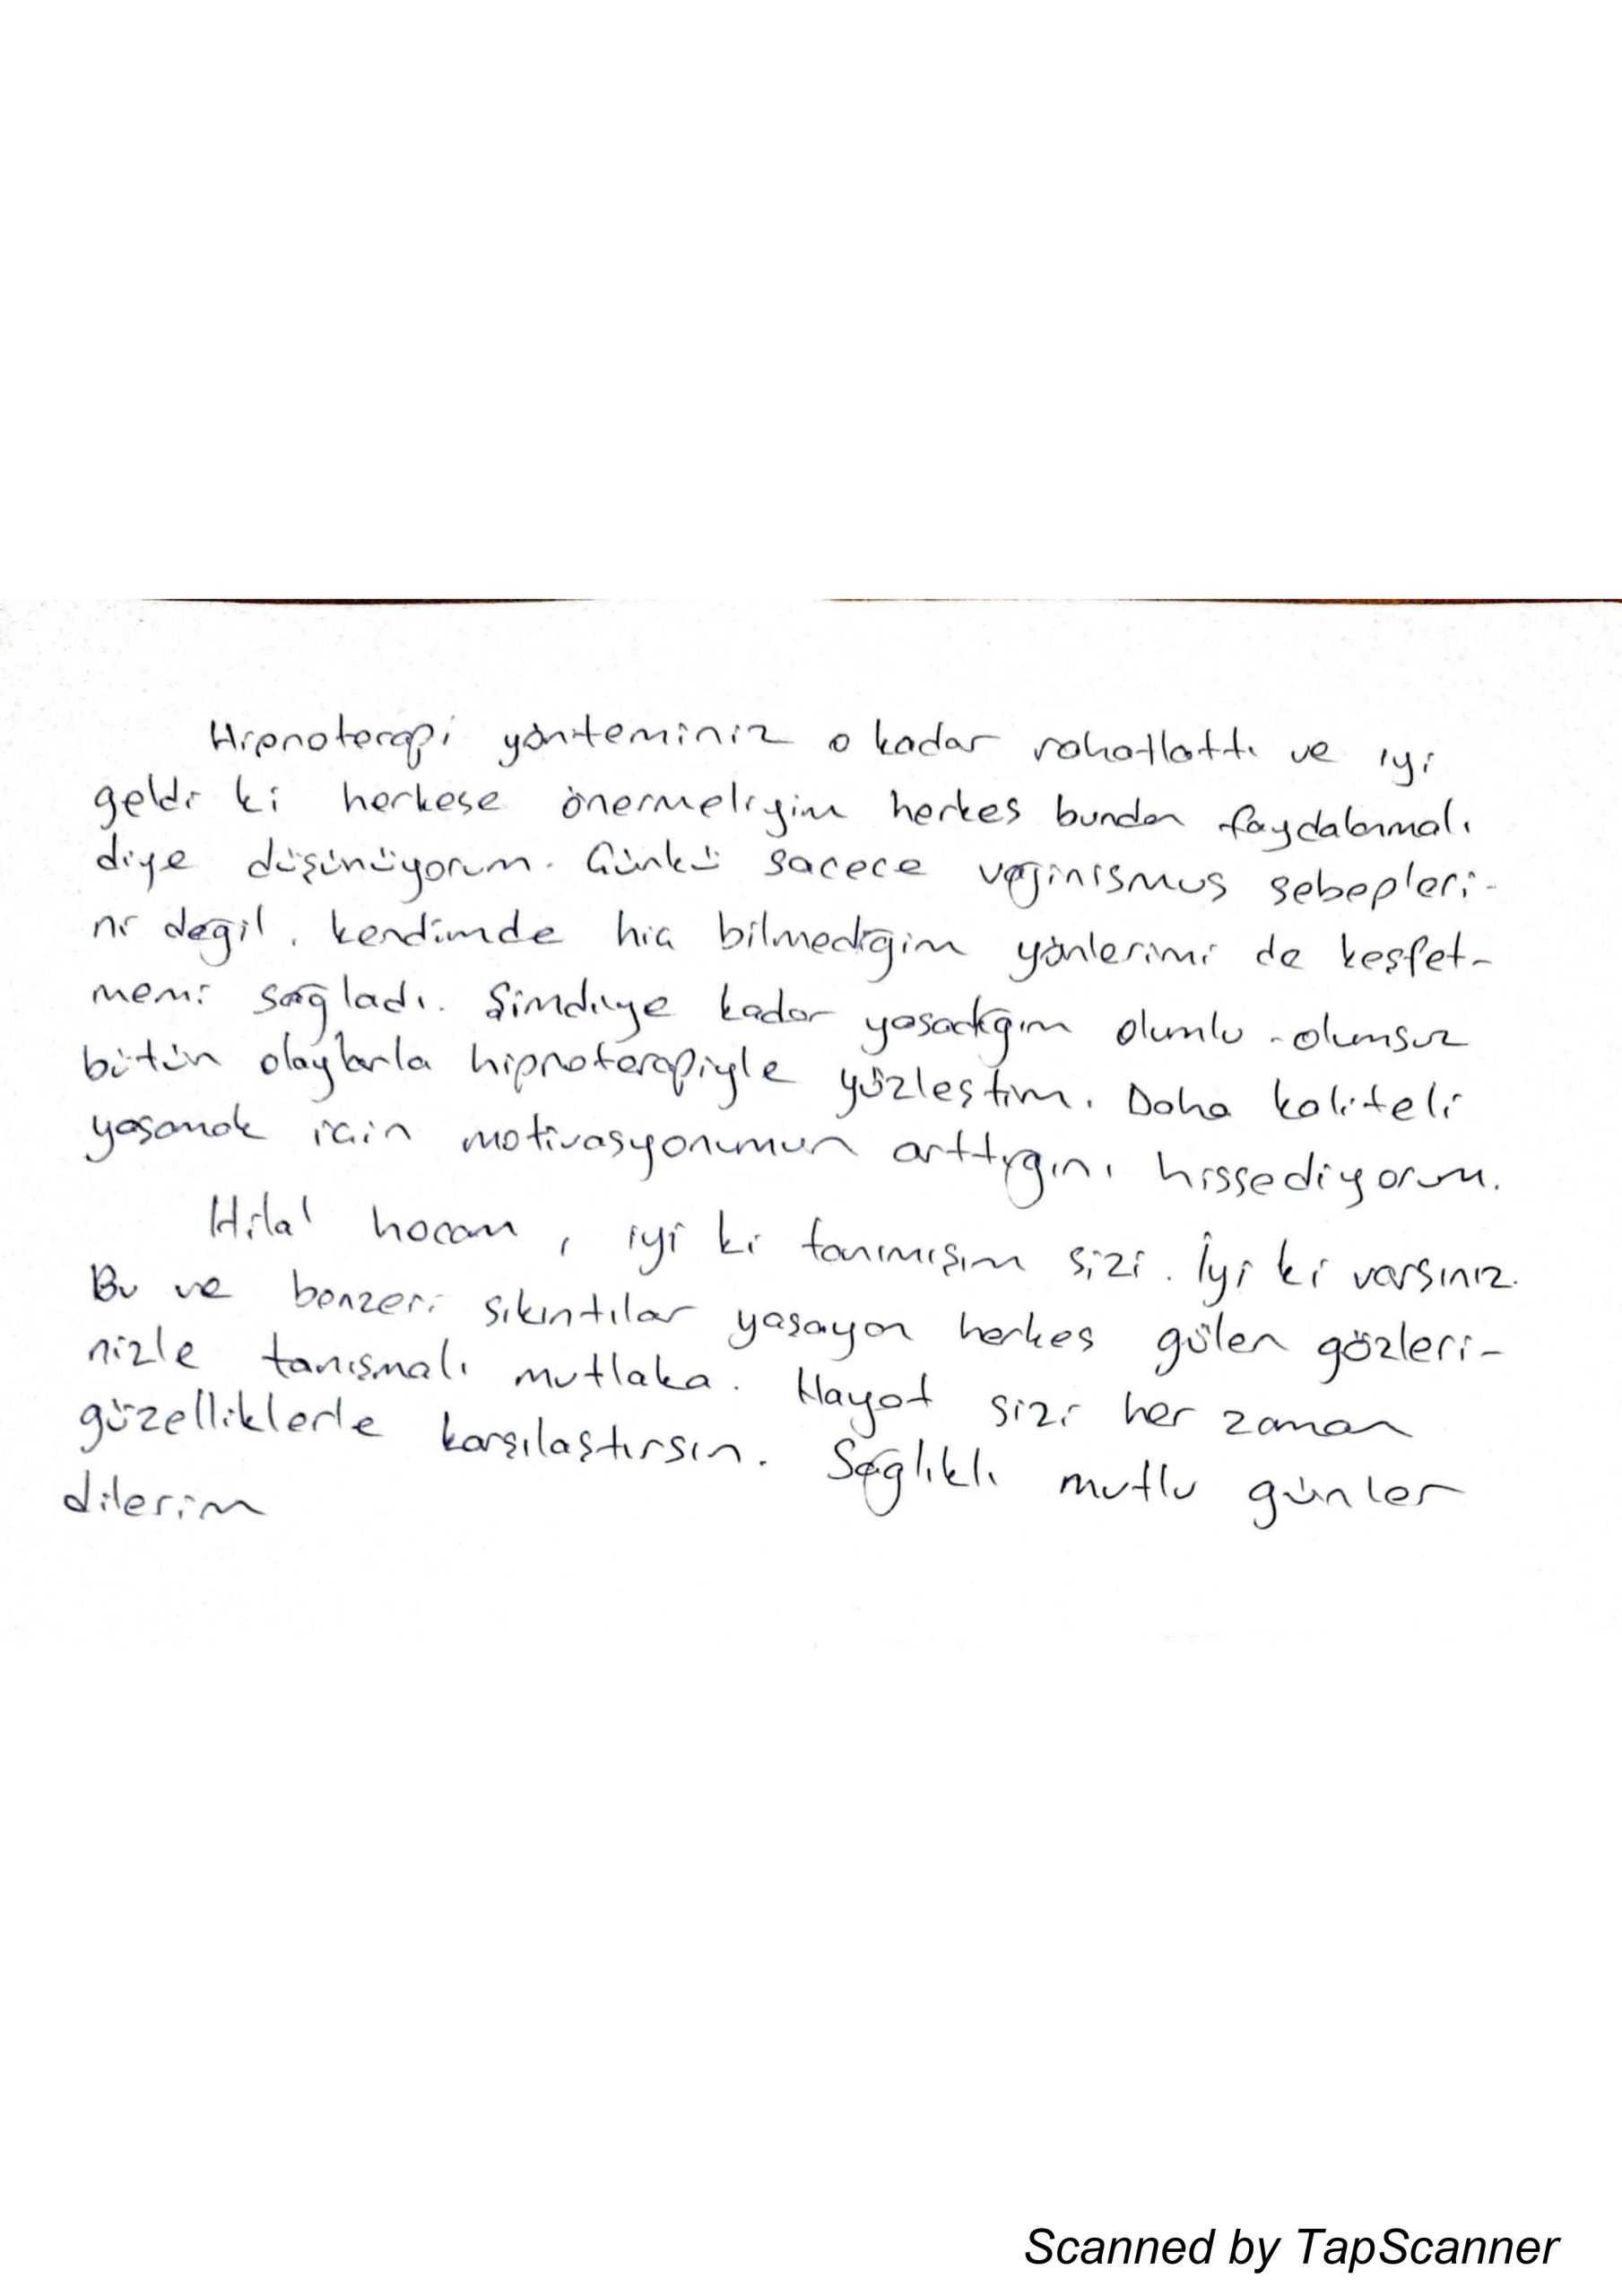 Hipnoterapi yönteminiz o kadar rahatlattı ve iyi
geldi ki herkese önermeliyim herkes bundan faydalanmalı
diye düşünüyorum. Çünkü sacece vajinismus sebepleri-
ni değil, kendimde hiç bilmediğim yönlerimi de keşfet-
memi sağladı. Şimdiye kadar yaşadığım olumlu-olumsuz
bütün olaylarla hipnoterapiyle yüzleştim. Daha kaliteli
yaşamak için motivasyonumun arttığını hissediyorum.
Hilal hocam, iyi ki tanımışım sizi. İyi ki varsınız.
Bu ve benzeri sıkıntılar yaşayan herkes gülen gözleri-
nizle tanışmalı mutlaka. Hayat sizi her zaman
güzelliklerle karşılaştırsın. Sağlıklı mutlu günler
dilerim
Scanned by TapScanner